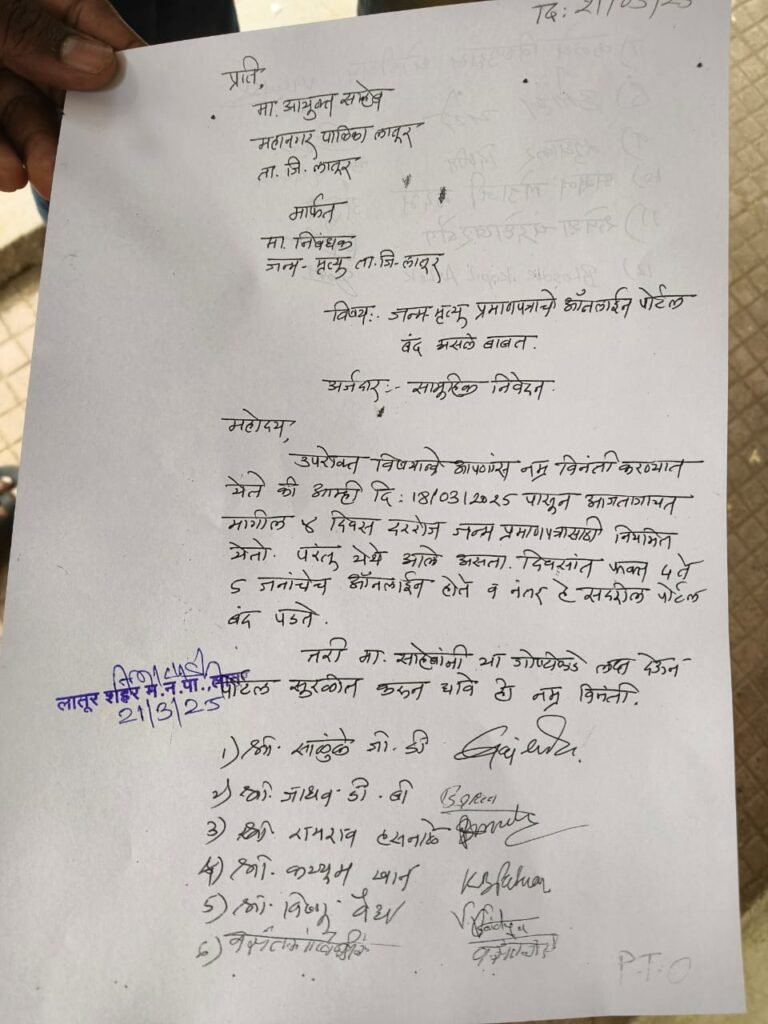 दि: 21/03/25
प्रति,
मा. आयुक्त साहेब
महानगर पालिका लातूर
ता. जि. लातूर
मार्फत
मा. निबंधक
जन्म- मृत्यु ता.जि-लातूर
विषय:- जन्म-मृत्यु प्रमाणपत्राचे ऑनलाईन पोर्टल
बंद असले बाबत.
अर्जदार:- सामुहिक निवेदन.
महोदय,
उपरोक्त विषयान्वे आपणांस नम्र विनंती करण्यात
येते की आम्ही दि: 18/03/2025 पासून आजतागायत
मागील ४ दिवस दररोज जन्म प्रमाणपत्रासाठी नियमित
येतो. परंतु येथे आले असता. दिवसांत फक्त ५ ते
५ जनांचेच ऑनलाईन होते व नंतर हे सदरील पोर्टल
बंद पडते.
तरी मा. साहेबांनी या गोष्टीकडे लक्ष देऊन
पोर्टल सुरळीत करून द्यावे ही नम्र विनंती.
लातूर शहर म.न.पा.,
21/3/25
1) श्री. साळुंके जी. डी
2) श्री. जाधव डी. बी
3) श्री. रामराव हसनाळे
4) श्री. कय्युम खान
5) श्री. विष्णु वैद्य
6)
P.T.O